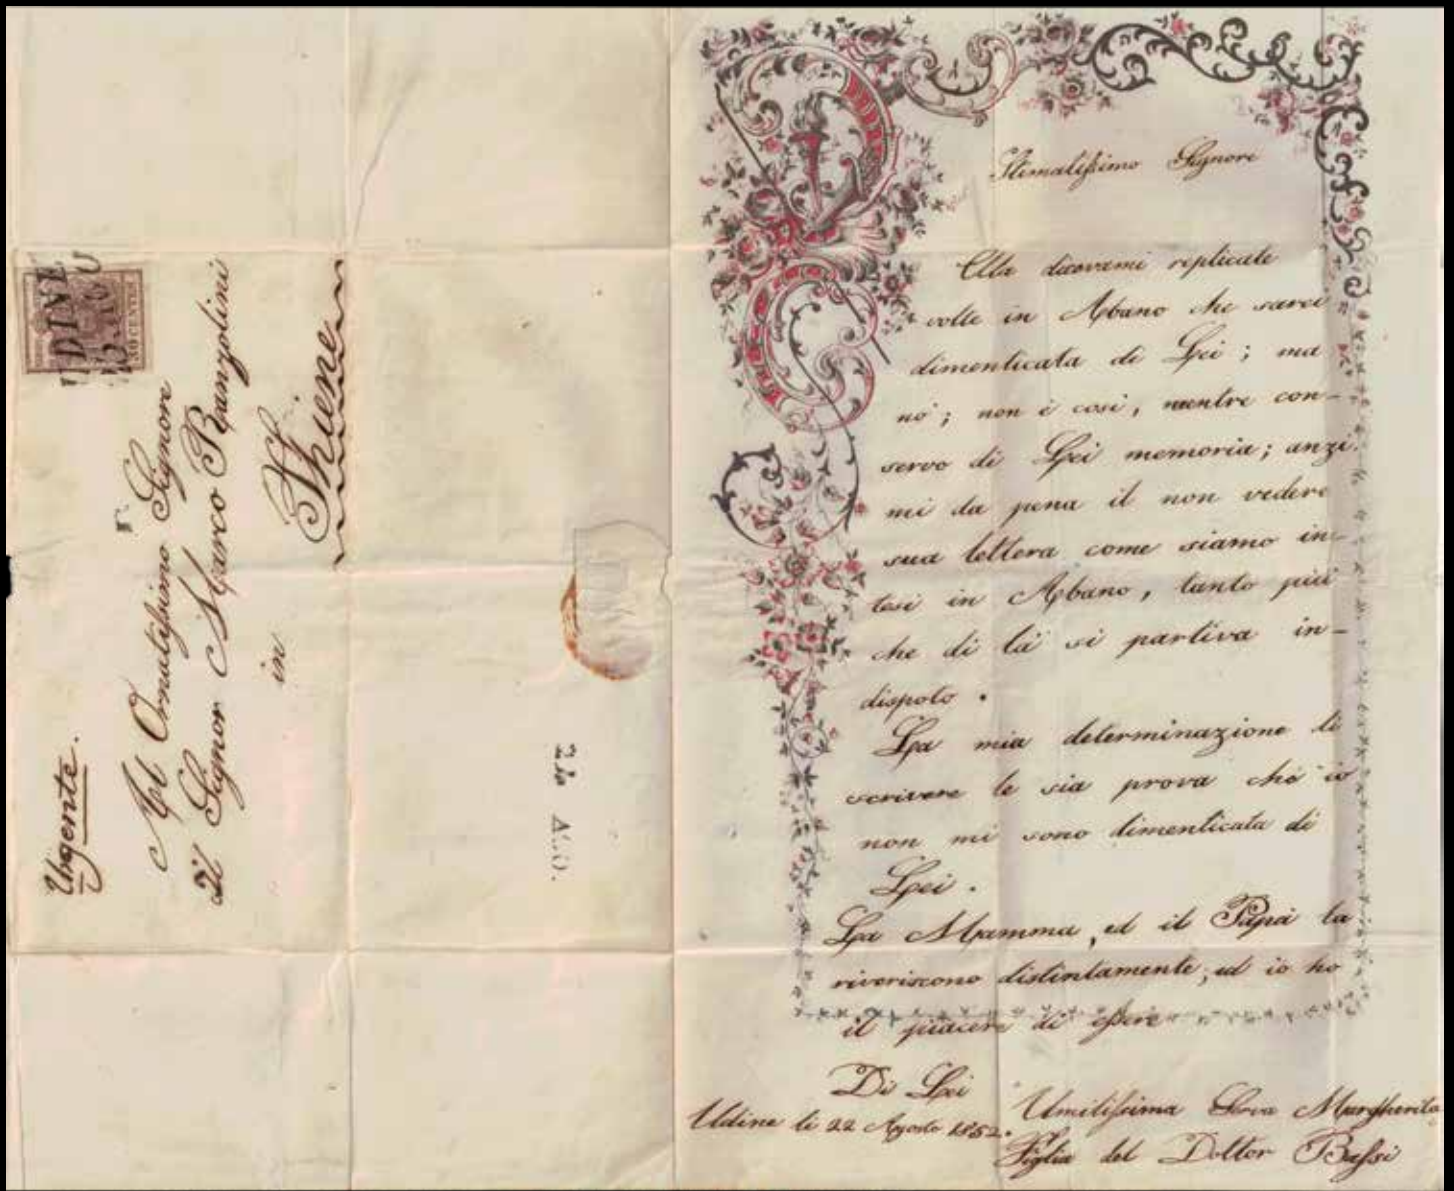 UDINE
30 CENTES
Urgente.
Al Ornatissimo Signore
Il Signor Marco Ranzolini
in
Thiene
24 AGO.
Stimatissimo Signore
Ella dicevami replicate
volte in Abano che sarei
dimenticata di Lei; ma
nò; non è così, mentre con-
servo di Lei memoria; anzi
mi da pena il non vedere
sua lettera come siamo in-
tesi in Abano, tanto più
che di là si partiva in-
disposto.
La mia determinazione di
scrivere le sia prova che io
non mi sono dimenticata di
Lei.
La Mamma, ed il Papà la
riveriscono distintamente, ed io ho
il piacere di essere
Di Lei
Udine li 22 Agosto 1852.
Umilissima Serva Margherita
Figlia del Dottor Bassi